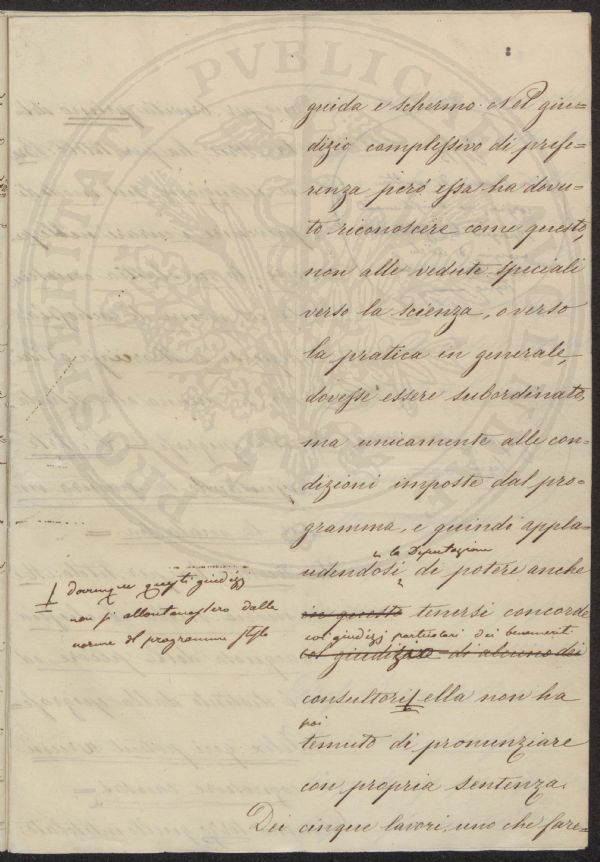 PROSPERITATI PVBLICAE
guida e schermo. Nel giu=
dizio complessivo di prefe=
renza però essa ha dovu=
to riconoscere come questo,
non alle vedute speciali
verso la scienza, o verso
la pratica in generale,
dovesse essere subordinato,
ma unicamente alle con=
dizioni imposte dal pro=
gramma, e quindi appla=
la Deputazione
udendosi di potere anche
in questo tenersi concorde
coi giudizj particolari dei benemeriti
col giudizio di alcuno dei
consultori ella non ha
poi
temuto di pronunziare
con propria sentenza.
Dei cinque lavori uno che fare=
dovunque questi giudizj
non si allontanassero dalle
norme del programma stesso